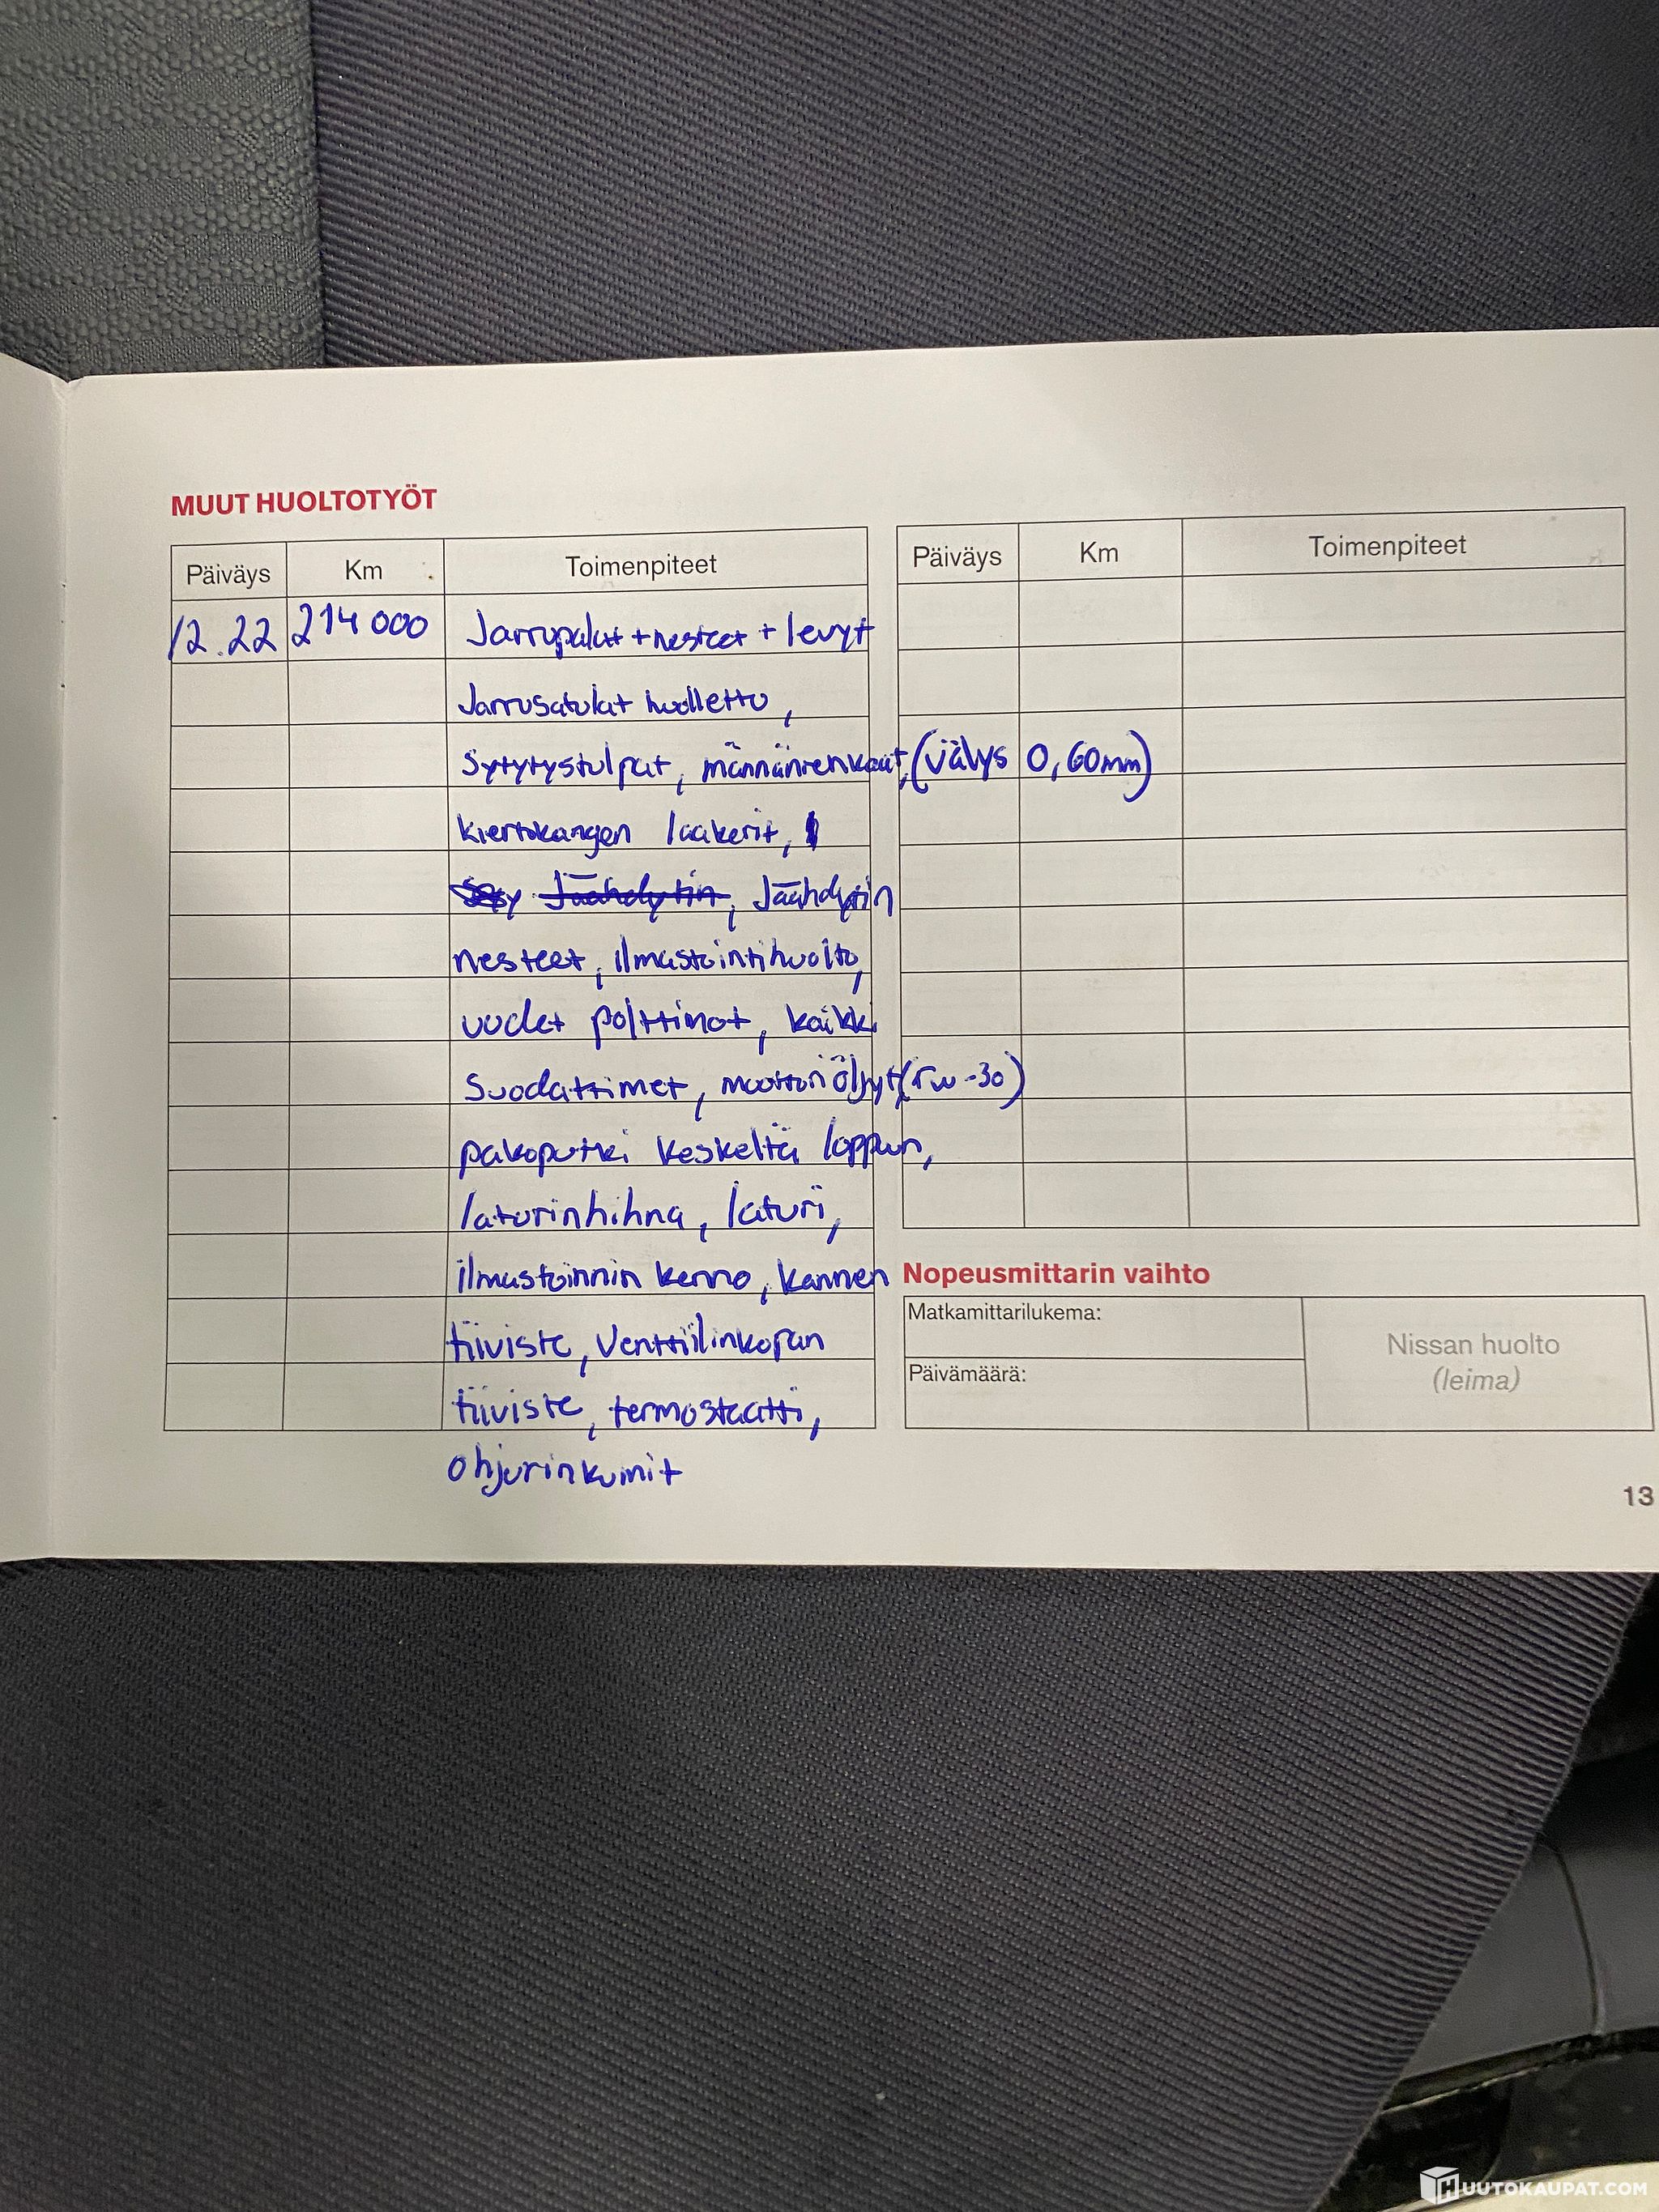 MUUT HUOLTOTYÖT
Päiväys Km Toimenpiteet
12.22 214 000 Jarrupalat + nesteet + levyt
Jarrusatulat huollettu,
Sytytystulpat, männänrenkaat, (välys 0,60mm)
kiertokangen laakerit,
Jäähdytin, Jäähdytin
nesteet, ilmastointihuolto,
uudet polttimot, kaikki
Suodattimet, moottoriöljyt (5w-30)
pakoputki keskeltä loppuun,
laturinhihna, laturi,
ilmastoinnin kenno, kannen
tiiviste, Venttiilinkopan
tiiviste, termostaatti,
ohjurinkumit
Päiväys Km Toimenpiteet
Nopeusmittarin vaihto
Matkamittarilukema:
Päivämäärä:
Nissan huolto
(leima)
13
HUUTOKAUPAT.COM